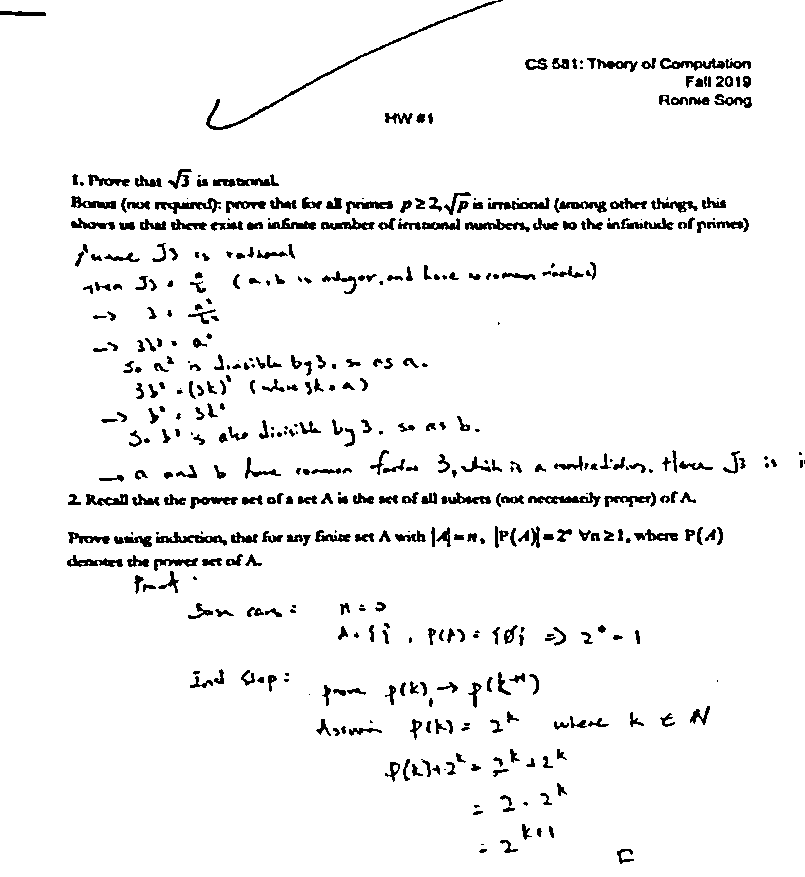 CS 581: Theory of Computation
Fall 2019
Ronnie Song
HW #1
1. Prove that √3 is irrational.
Bonus (not required): prove that for all primes p ≥ 2, √p is irrational (among other things, this
shows us that there exist an infinite number of irrational numbers, due to the infinitude of primes)
Assume √3 is rational
Then √3 = a/b (a, b is integer, and have no common factors)
→ 3 = a²/b²
→ 3b² = a²
So a² is divisible by 3, so as a.
3b² = (3k)² (where 3k = a)
→ b² = 3k²
So b² is also divisible by 3, so as b.
→ a and b have common factor 3, which is a contradiction. Hence √3 is i
2. Recall that the power set of a set A is the set of all subsets (not necessarily proper) of A.
Prove using induction, that for any finite set A with |A| = n, |P(A)| = 2ⁿ ∀n ≥ 1, where P(A)
denotes the power set of A.
Proof:
Base case: n = 0
A = { }, P(A) = {∅} => 2⁰ = 1
Ind Step: prove p(k) → p(k+1)
Assume P(k) = 2^k where k ∈ N
P(k) + 2^k = 2^k + 2^k
= 2 · 2^k
= 2^(k+1)
□